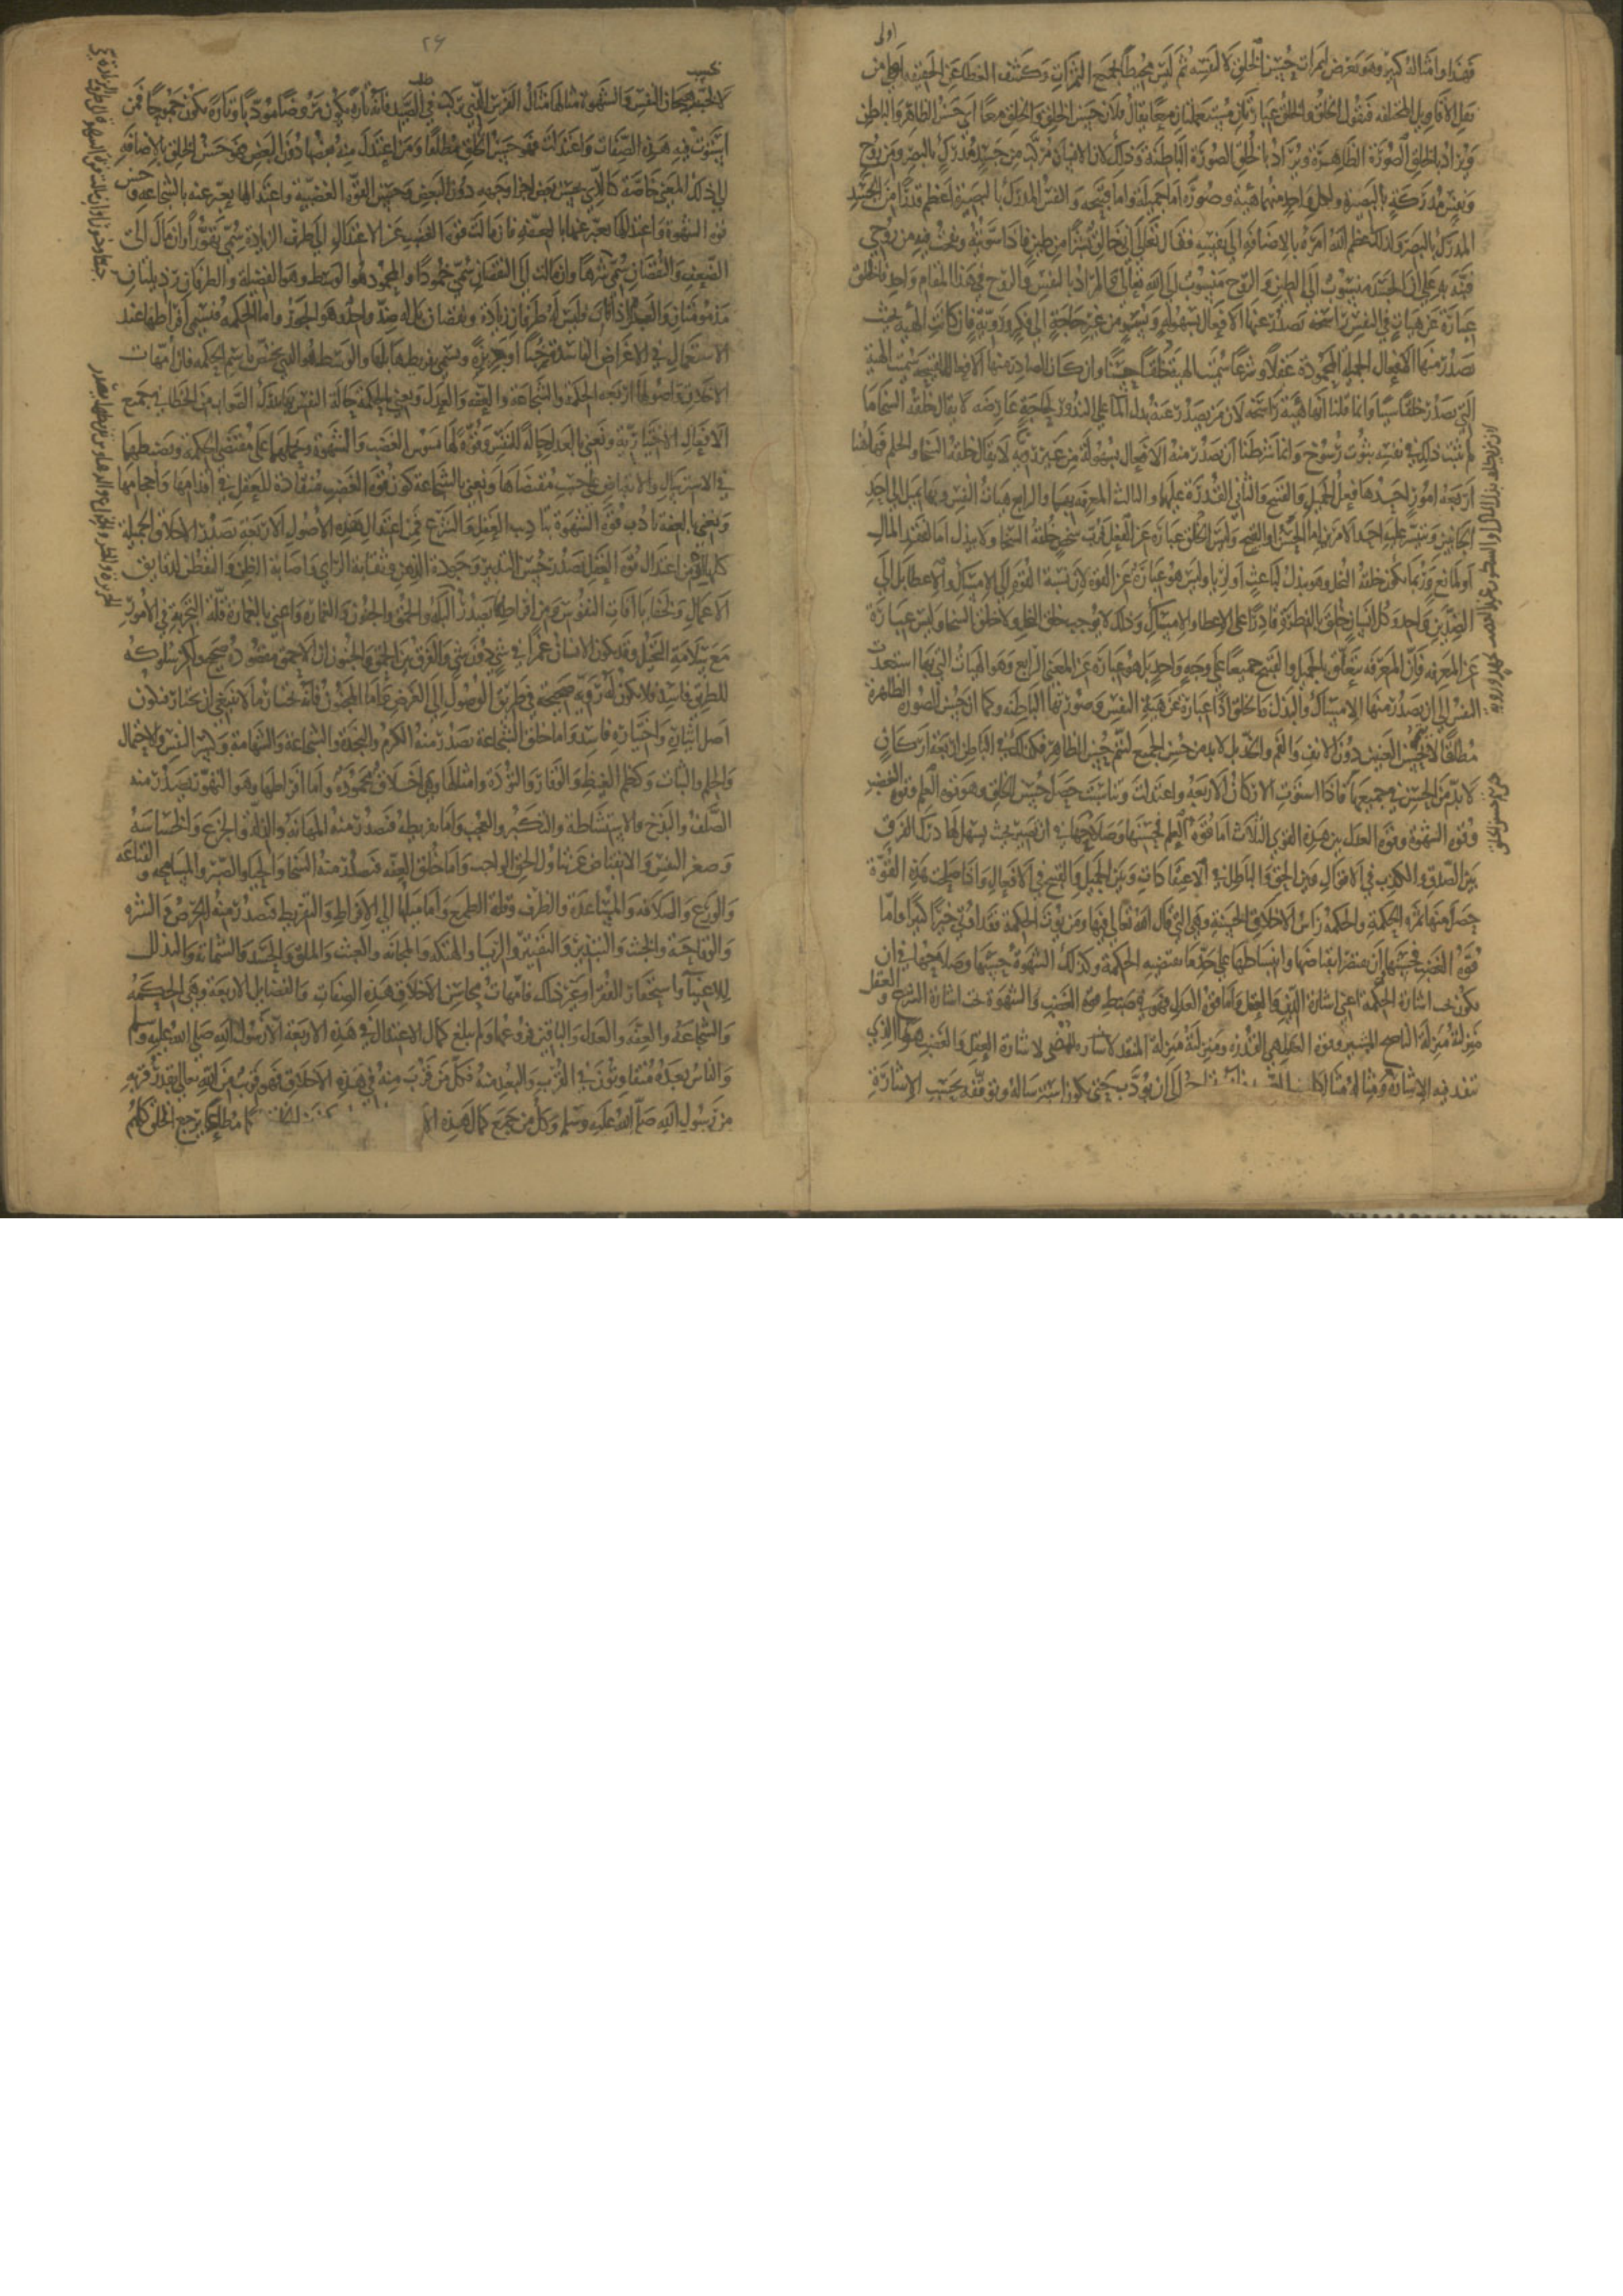 فهذا وامثاله كثير وهو تعرض لثمرات حسن الخلق لا لنفسه ثم ليس محيطا بجميع الثمرات وكشف الغطا عن الحقيقة اولى من
نقل الاقاويل المختلفه فنقول الخلق والخلق عبارتان مستعملتان معا يقال فلان حسن الخلق والخلق معا اي حسن الظاهر والباطن
ويراد بالخلق الصورة الظاهرة ويراد بالخلق الصورة الباطنة وذلك لان الانسان مركب من جسد مدرك بالبصر ومن روح
ونفس مدركة بالبصيرة ولكل واحد منهما هيئة وصورة اما جميلة واما قبيحه والنفس المدركة بالبصيرة اعظم قدرا من الجسد
المدرك بالبصر ولذلك عظم الله امره بالاضافة الى نفسه فقال تعالى اني خالق بشرا من طين فاذا سويته ونفخت فيه من روحي
فنبه به على ان الجسد منسوب الى الطين والروح منسوب الى الله تعالى والمراد بالنفس والروح في هذا المقام واحد فالخلق
عبارة عن هيات في النفس راسخة تصدر عنها الافعال بسهولة ويسر من غير حاجة الى فكر وروية فان كانت الهية بحيث
تصدر منها الافعال الجميلة المحمودة عقلا وشرعا سميت الهية خلقا حسنا وان كان الصادر منها الافعال القبيحة سميت الهية
التي تصدر خلقا سيا وانما قلنا انها هية راسخة لان من يصدر عنه بذل المال على الندور لحاجة عارضه لا يقال خلقه السخا ما
لم يثبت ذلك في نفسه ثبوت رسوخ وانما شرطنا ان تصدر منه الافعال بسهولة من غير روية لا يقال خلقه السخا والحلم فههنا
اربعة امور احدها فعل الجميل والقبيح والثاني القدرة عليها والثالث المعرفه بهما والرابع هيات النفس بها يميل الى احد
الجانبين ويتيسر عليه احد الامرين اما الحسن واما القبيح وليس الخلق عبارة عن الفعل فرب شخص خلقه السخا ولا يبذل اما لفقد المال
او لمانع وربما يكون خلقه البخل وهو يبذل لباعث او لريا وليس هو عبارة عن القوة لان نسبة القوة الى الامساك والاعطا بل الى
الضدين واحد وكل انسان خلق بالفطرة قادرا على الاعطا والامساك وذلك لا يوجب خلق البخل ولا خلق السخا وليس عبارة
عن المعرفه فان المعرفه تتعلق بالجميل والقبيح جميعا على وجه واحد بل هو عبارة عن المعنى الرابع وهو الهيات التي بها استعدت
النفس الى ان يصدر منها الامساك والبذل فالخلق اذا عبارة عن هية النفس وصورتها الباطنه وكما ان حسن الصورة الظاهرة
مطلقا لا يتم بحسن العينين دون الانف والفم والخد بل لابد من حسن الجميع ليتم حسن الظاهر فكذلك في الباطن اربعة اركان
لابد من الحسن في جميعها فاذا استوت الاركان الاربعة واعتدلت وتناسبت حصل حسن الخلق وهو قوة العلم وقوة الغضب
وقوه الشهوة وقوة العدل بين هذه القوى الثلاث اما قوة العلم فحسنها وصلاحها في ان تصير بحيث يسهل لها درك الفرق
بين الصدق والكذب في الاقوال وبين الحق والباطل في الاعتقادات وبين الجميل والقبيح في الافعال فاذا صلحت هذه القوة
حصل منها ثمرة الحكمة والحكمة راس الاخلاق الحسنة وهي التي قال الله تعالى فيها ومن يوت الحكمة فقد اوتي خيرا كثيرا واما
قوة الغضب فحسنها ان يقتصر انقباضها وانبساطها على حد ما تقتضيه الحكمة وكذلك الشهوة حسنها وصلاحها في ان
تكون تحت اشارة الحكمة اعني اشارة الدين والعقل واما قوة العدل فهو في ضبط قوة الغضب والشهوة تحت اشارة الشرع والعقل
منزلته منزلة الناصح المشير وقوة العدل هي القدرة ومنزلته منزلة المنفذ لاشارة العقل والغضب هو الذي
تنفذ فيه الاشارة ومثاله مثال الى ان يودب حتى يكون استرساله وتوقفه بحسب الاشارة
٢٦
لا بحسب هيجان النفس والشهوة مثالها مثال الفرس الذي يركب في طلب الصيد فانه تارة يكون مروضا مودبا وتارة يكون جموحا فمن
استوت فيه هذه الصفات واعتدلت فهو حسن الخلق مطلقا ومن اعتدل منه بعضها دون البعض فهو حسن الخلق بالاضافة
الى ذلك المعنى خاصة كالذي يحسن بعض اجزا وجهه دون البعض وحسن القوة الغضبية واعتدالها يعبر عنه بالشجاعة وحسن
قوة الشهوة واعتدالها يعبر عنها بالعفة فان مالت قوة الغضب عن الاعتدال الى طرف الزيادة سمي تهورا وان مال الى
الضعف والنقصان سمي شرها وان مالت الى النقصان سمي خمودا والمحمود هو الوسط وهو الفضيلة والطرفان رذيلتان
مذمومتان والعدل اذا فات فليس له طرفان زيادة ونقصان بل له ضد واحد وهو الجور واما الحكمة فتسمى افراطها عند
الاستعمال في الاغراض الفاسدة خبا وجربزة ويسمى تفريطها بلها والوسط هو الذي يختص باسم الحكمه فان امهات
الاخلاق واصولها اربعة الحكمة والشجاعة والعفة والعدل ونعني بالحكمة حالة النفس بها تدرك الصواب من الخطا في جميع
الافعال الاختيارية ونعني بالعدل حالة للنفس وقوة لها تسوس الغضب والشهوة وتحملها على مقتضى الحكمة وتضبطهما
في الاسترسال والانقباض على حسب مقتضاها ونعني بالشجاعة كون قوة الغضب منقادة للعقل في اقدامها واحجامها
ونعني بالعفة تادب قوة الشهوة بتاديب العقل والشرع فمن اعتدال هذه الاصول الاربعة تصدر الاخلاق الجميلة
كلها فمن اعتدال قوة العقل تصدر حسن التدبير وجودة الذهن وثقابة الراي واصابة الظن والتفطن لدقايق
الاعمال وخفايا افات النفوس ومن افراطها يصدر البله والحمق والجنون والغمارة واعني بالغمارة قلة التجربة في الامور
مع سلامة التخيل وقد يكون الانسان غمرا في شي دون شي والفرق بين الحمق والجنون ان الاحمق مقصوده صحيح ولكن سلوكه
للطريق فاسد فلا يكون له روية صحيحة في طريق الوصول الى الغرض واما المجنون فانه يختار ما لا ينبغي ان يختار فيكون
اصل ايثاره واختياره فاسدا واما خلق الشجاعة تصدر منه الكرم والنجدة والشجاعة والشهامة وكسر النفس والاحتمال
والحلم والثبات وكظم الغيظ والوقار والتودة وامثالها وهي اخلاق محمودة واما افراطها وهو التهور تصدر منه
الصلف والبذخ والاستشاطة والتكبر والعجب واما تفريطه فتصدر منه المهانة والذلة والجزع والخساسة
وصغر النفس والانقباض عن تناول الحق الواجب واما خلق العفة فتصدر منه السخا والحيا والصبر والمسامحة والقناعه
والورع والطلاقة والمساعدة والظرف وقلة الطمع واما ميلها الى الافراط والتفريط فتصدر منه الحرص والشره
والوقاحة والخبث والتبذير والتقتير والريا والهتكه والمجانة والعبث والملق والحسد والشماتة والتذلل
للاغنيا واستحقار الفقرا وغير ذلك فامهات محاسن الاخلاق هذه الصفات فالفضايل الاربعة وهي الحكمه
والشجاعة والعفة والعدل والباقي فروعها ولم يبلغ كمال الاعتدال في هذه الاربعة الا رسول الله صلى الله عليه وسلم
والناس بعده متفاوتون في القرب والبعد منه فكل من قرب منه في هذه الاخلاق فهو قريب من الله تعالى بقدر قربه
من رسول الله صلى الله عليه وسلم وكل من جمع كمال هذه الا مطاعا يرجع الخلق كلهم